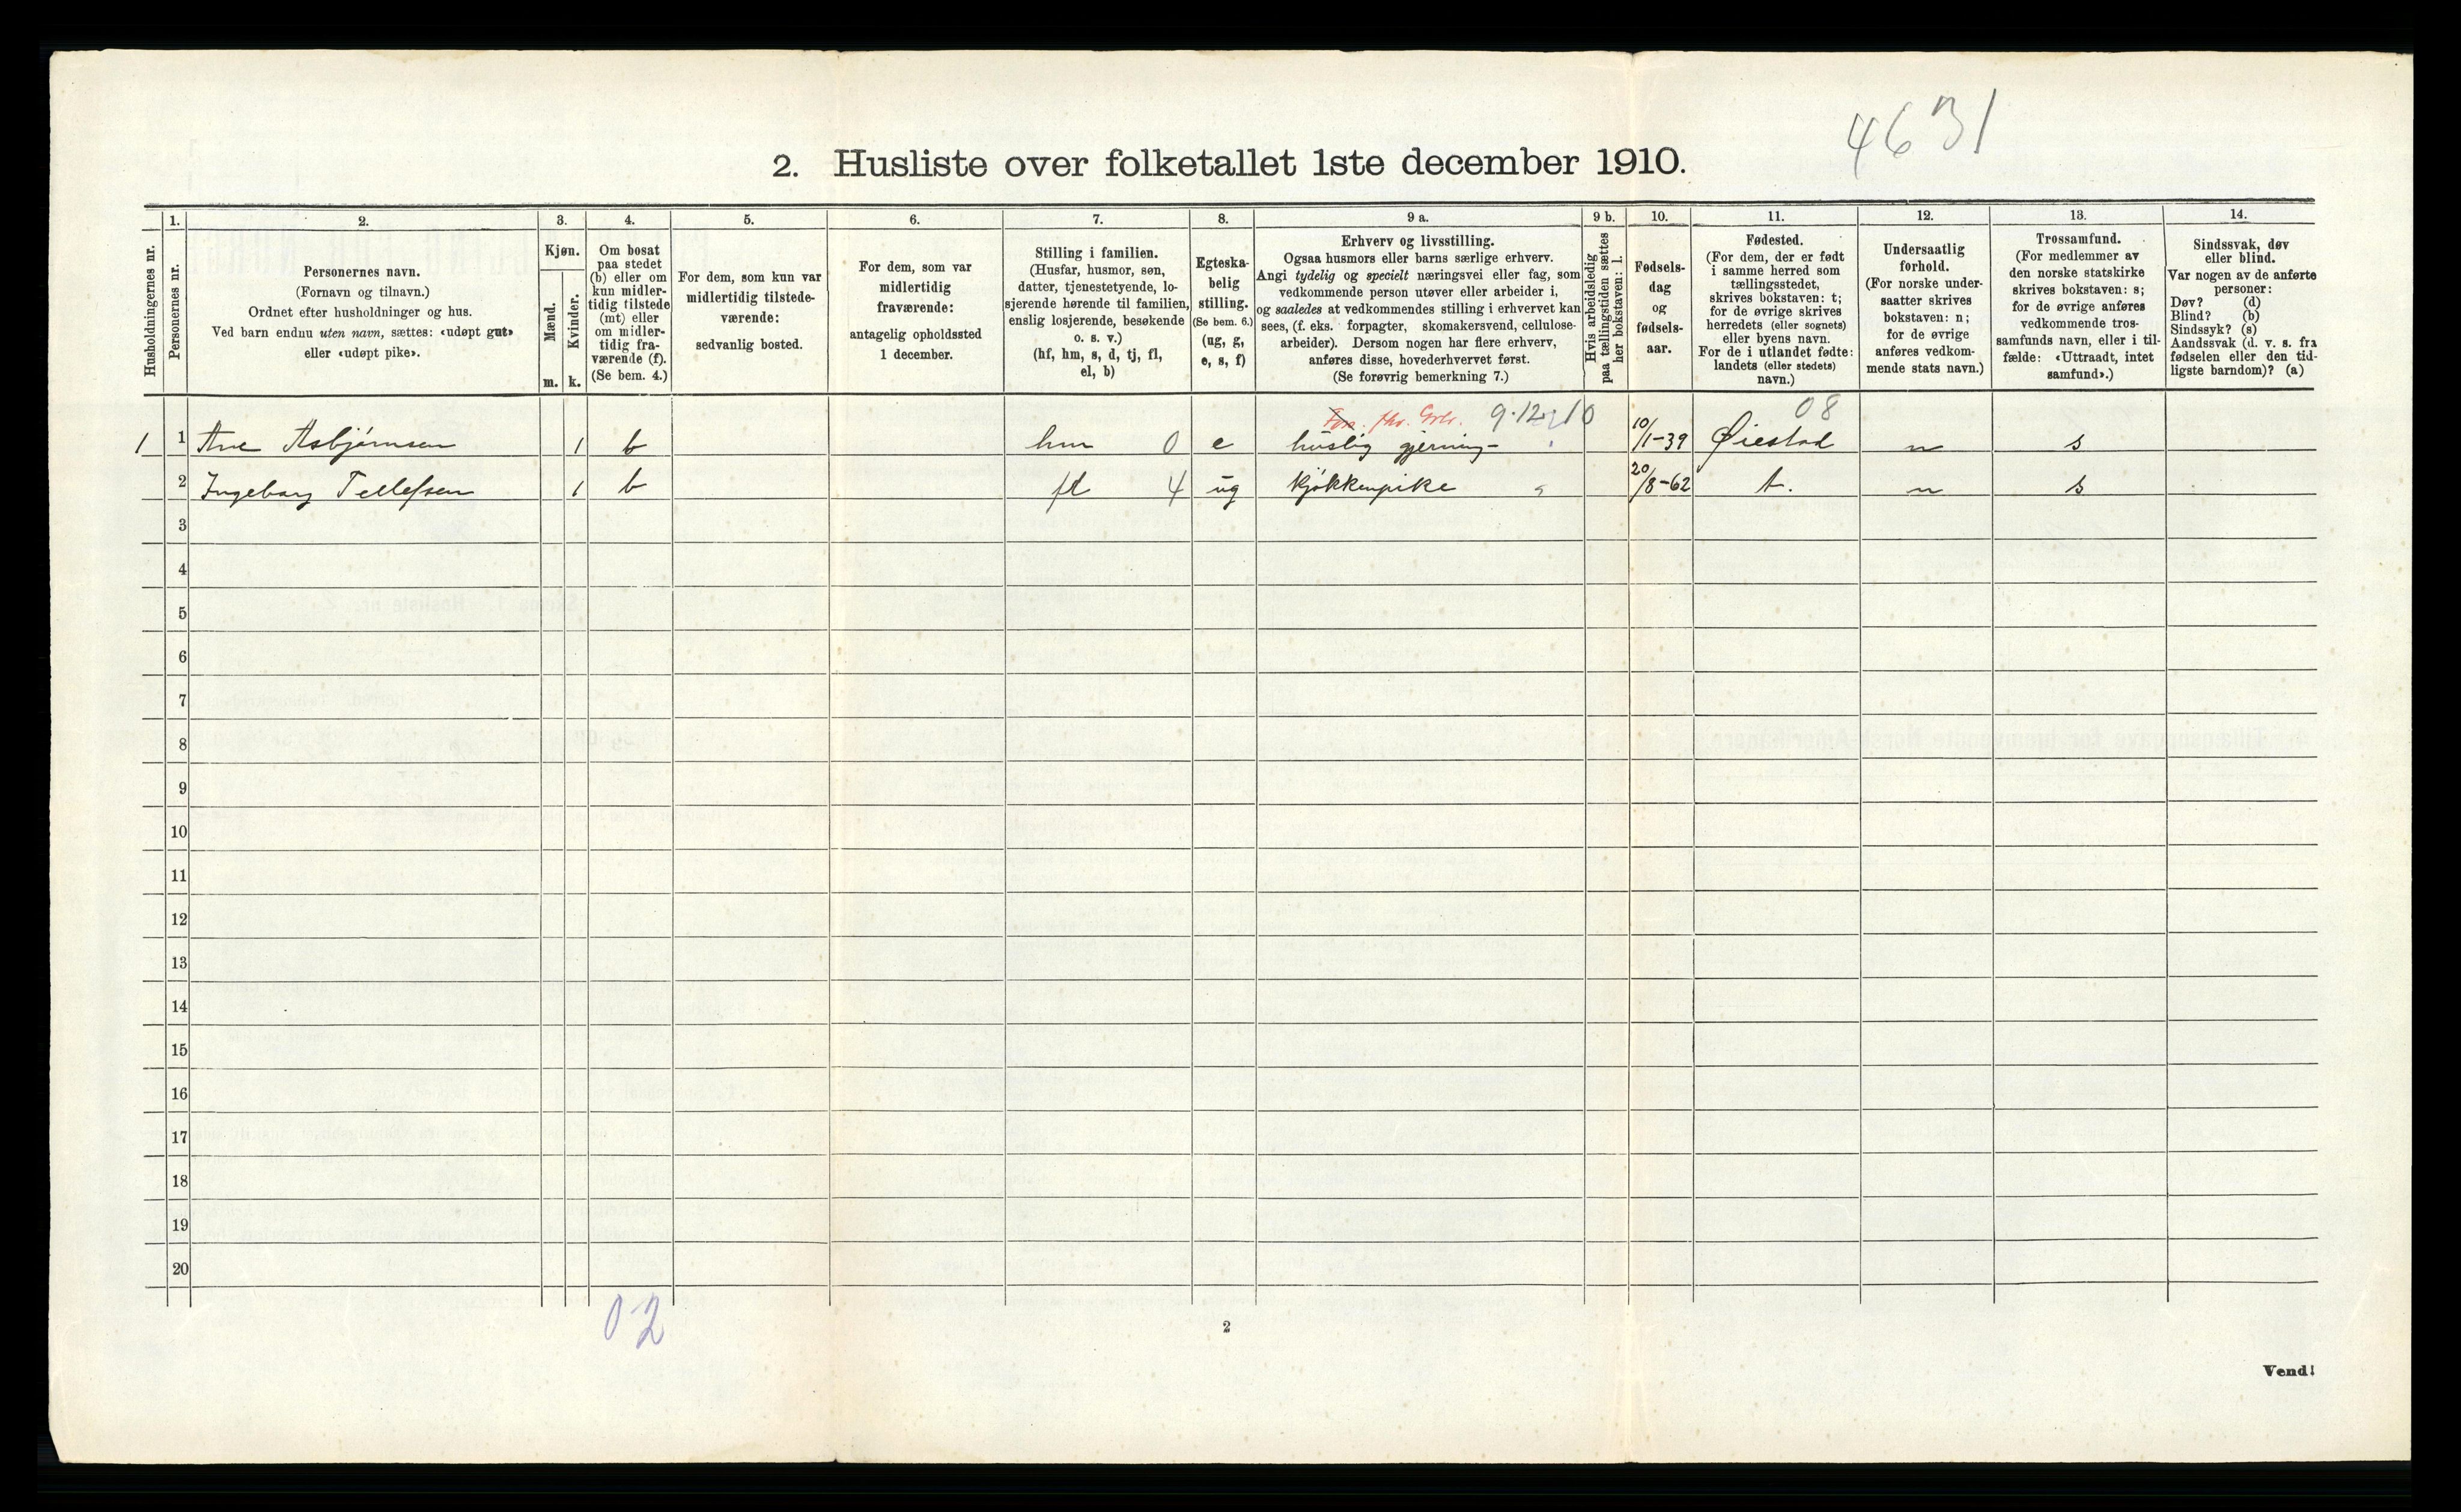 4631
2. Husliste over folketallet 1ste december 1910.
Husholdningernes nr.
1.
Personernes nr.
2.
Personernes navn.
(Fornavn og tilnavn.)
Ordnet efter husholdninger og hus.
Ved barn endnu uten navn, sættes: «udøpt gut»
eller «udøpt pike».
3.
Kjøn.
Mænd.
Kvinder.
m. k.
4.
Om bosat
paa stedet
(b) eller om
kun midler-
tidig tilstede
(mt) eller
om midler-
tidig fra-
værende (f).
(Se bem. 4.)
5.
For dem, som kun var
midlertidig tilstede-
værende:
sedvanlig bosted.
6.
For dem, som var
midlertidig
fraværende:
antagelig opholdssted
1 december.
7.
Stilling i familien.
(Husfar, husmor, søn,
datter, tjenestetyende, lo-
sjerende hørende til familien,
enslig losjerende, besøkende
o. s. v.)
(hf, hm, s, d, tj, fl,
el, b)
8.
Egteska-
belig
stilling.
(Se bem. 6.)
(ug, g,
e, s, f)
9 a.
Erhverv og livsstilling.
Ogsaa husmors eller barns særlige erhverv.
Angi tydelig og specielt næringsvei eller fag, som
vedkommende person utøver eller arbeider i,
og saaledes at vedkommendes stilling i erhvervet kan
sees, (f. eks. forpagter, skomakersvend, cellulose-
arbeider). Dersom nogen har flere erhverv,
anføres disse, hovederhvervet først.
(Se forøvrig bemerkning 7.)
9 b.
Hvis arbeidsledig
paa tællingstiden sættes
her bokstaven: l.
10.
Fødsels-
dag
og
fødsels-
aar.
11.
Fødested.
(For dem, der er født
i samme herred som
tællingsstedet,
skrives bokstaven: t;
for de øvrige skrives
herredets (eller sognets)
eller byens navn.
For de i utlandet fødte:
landets (eller stedets)
navn.)
12.
Undersaatlig
forhold.
(For norske under-
saatter skrives
bokstaven: n;
for de øvrige
anføres vedkom-
mende stats navn.)
13.
Trossamfund.
(For medlemmer av
den norske statskirke
skrives bokstaven: s;
for de øvrige anføres
vedkommende tros-
samfunds navn, eller i til-
fælde: «Uttraadt, intet
samfund».)
14.
Sindssvak, døv
eller blind.
Var nogen av de anførte
personer:
Døv? (d)
Blind? (b)
Sindssyk? (s)
Aandssvak (d. v. s. fra
fødselen eller den tid-
ligste barndom)? (a)
9.12 10 08
1 1 Ane Asbjørnsen 1 b hm 0 e huslig gjerning - 10/1-39 Øiestad n s
2 Ingeborg Tellefsen 1 b fl 4 ug kjøkkenpike 20/8-62 t. n s
3
4
5
6
7
8
9
10
11
12
13
14
15
16
17
18
19
20
02
2
Vend!